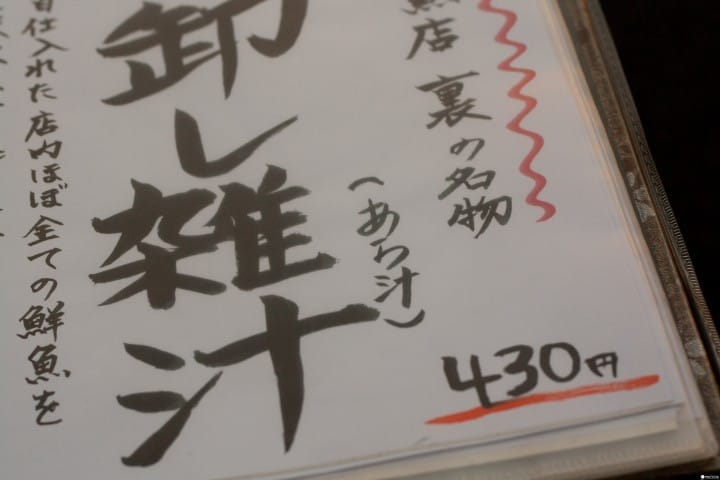 店 裏の名物
卸し雑汁
(あら汁)
430円
仕入れた店内ほぼ全ての鮮魚を